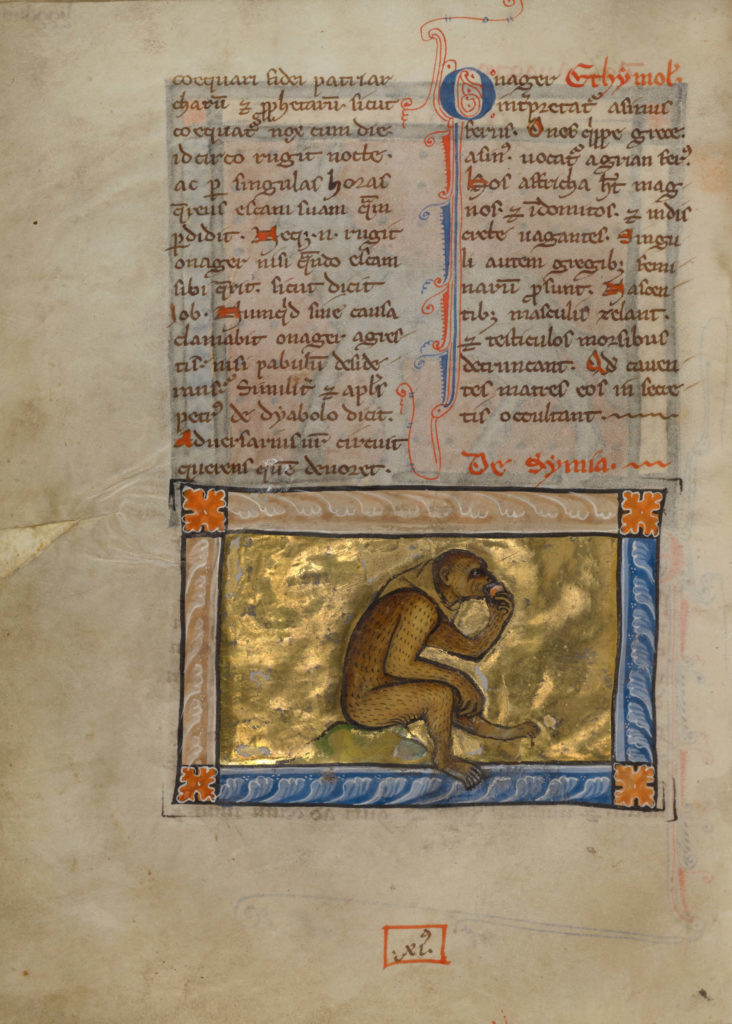 coequari fidei patriar
charū ⁊ p̄phetarū sicut
coequat᷒ nox cum die
idcirco rugit nocte.
ac ꝑ singulas horas
q̄rens escam suam q̄m
ꝑdidit. Neqꝫ.n. rugit
onager nisi q̄ndo escam
sibi q̄rit. sicut dicit
Iob. Numq̄d sine causa
clamabit onager agres
tis. nisi pabulū deside
rans᷒ Similit᷒ ⁊ apl's
petr᷒ de dyabolo dicit.
Aduersarius ur̄ circuit
querens quē deuoret.
Onager Ethẏmol'.
Int̄pretat᷒ asinus
ferus. Onos q̄ppe grece.
asin᷒ uocat᷒ agrian fer᷒.
Hos affricha h̄t mag
nos. ⁊ īdomitos. ⁊ indis
crete uagantes. Singu
li autem gregibꝫ femi
narū p̄sunt. Nascen
tibꝫ masculis zelant.
⁊ testiculos morsibus
detruncant. Qd̄ cauen
tes matres eos in secre
tis occultant.
De Symia.
.xi᷒.